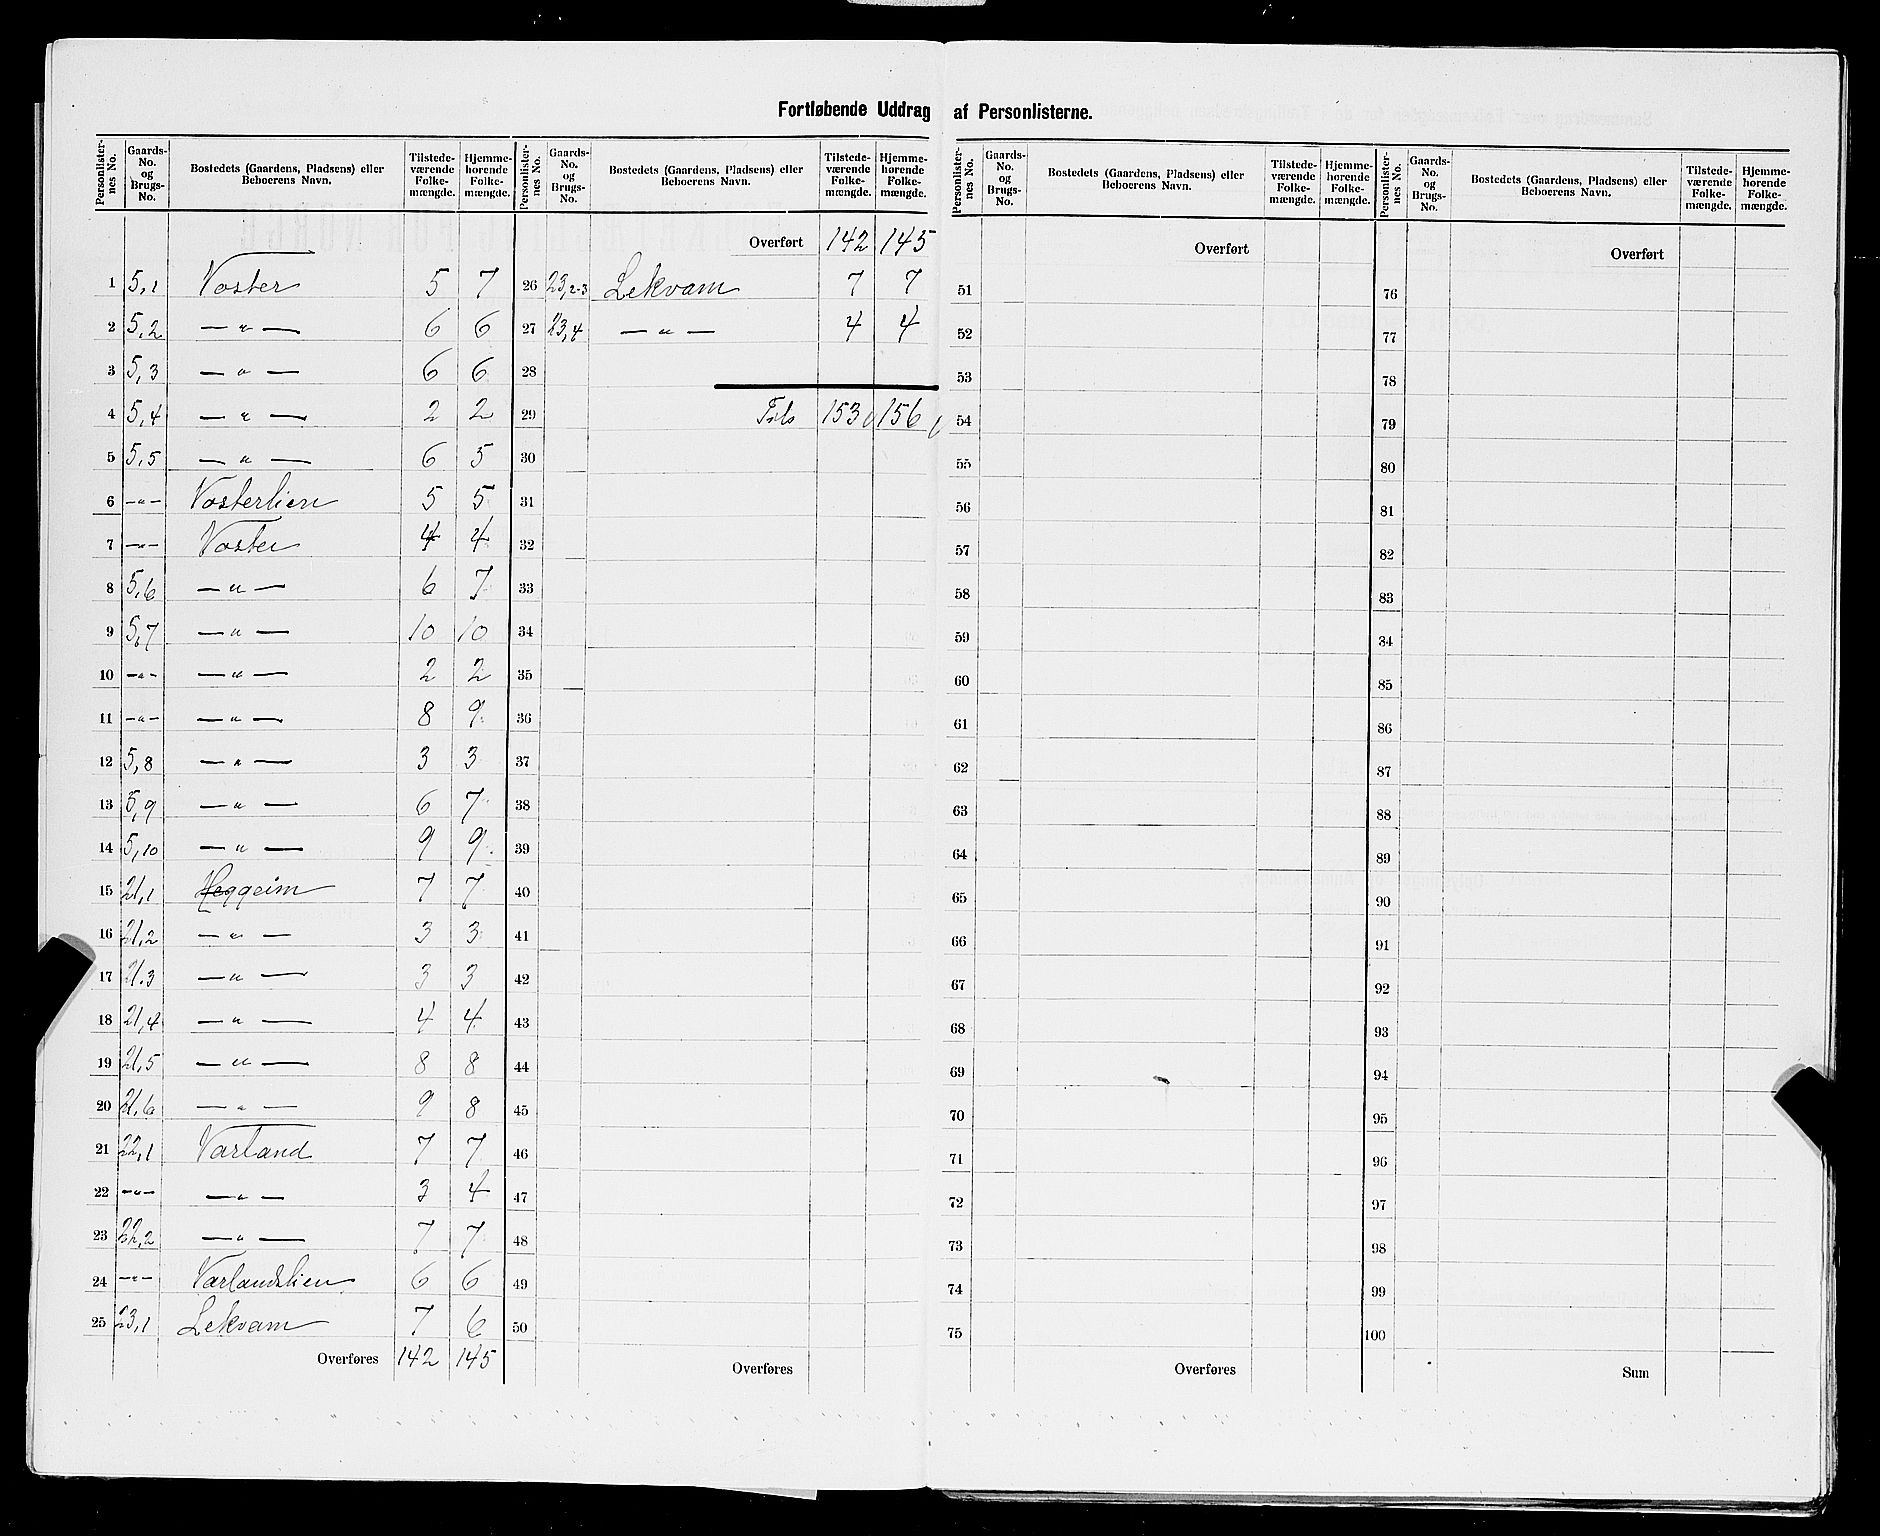 Fortløbende Uddrag af Personlisterne.
Personlister-nes No. | Gaards-No. og Brugs-No. | Bostedets (Gaardens, Pladsens) eller Beboerens Navn. | Tilstede-værende Folke-mængde. | Hjemme-hørende Folke-mængde.
1 5,1 Voster 5 7
2 5,2 —"— 6 6
3 5,3 —"— 6 6
4 5,4 —"— 2 2
5 5,5 —"— 6 5
6 —"— Vosterlien 5 5
7 —"— Voster 4 4
8 5,6 —"— 6 7
9 5,7 —"— 10 10
10 —"— —"— 2 2
11 —"— —"— 8 9
12 5,8 —"— 3 3
13 5,9 —"— 6 7
14 5,10 —"— 9 9
15 21,1 Heggeim 7 7
16 21,2 —"— 3 3
17 21.3 —"— 3 3
18 21,4 —"— 4 4
19 21,5 —"— 8 8
20 21,6 —"— 9 8
21 22,1 Varland 7 7
22 —"— —"— 3 4
23 22,2 —"— 7 7
24 —"— Varlandslien 6 6
25 23,1 Lekvam 7 6
Overføres 142 145
Personlister-nes No. | Gaards-No. og Brugs-No. | Bostedets (Gaardens, Pladsens) eller Beboerens Navn. | Tilstede-værende Folke-mængde. | Hjemme-hørende Folke-mængde.
Overført 142 145
26 23,2-3 Lekvam 7 7
27 23,4 —"— 4 4
28
29 Tils 153 156
30
31
32
33
34
35
36
37
38
39
40
41
42
43
44
45
46
47
48
49
50
Overføres
Personlister-nes No. | Gaards-No. og Brugs-No. | Bostedets (Gaardens, Pladsens) eller Beboerens Navn. | Tilstede-værende Folke-mængde. | Hjemme-hørende Folke-mængde.
Overført
51
52
53
54
55
56
57
58
59
60
61
62
63
64
65
66
67
68
69
70
71
72
73
74
75
Overføres
Personlister-nes No. | Gaards-No. og Brugs-No. | Bostedets (Gaardens, Pladsens) eller Beboerens Navn. | Tilstede-værende Folke-mængde. | Hjemme-hørende Folke-mængde.
Overført
76
77
78
79
80
81
82
83
84
85
86
87
88
89
90
91
92
93
94
95
96
97
98
99
100
Sum